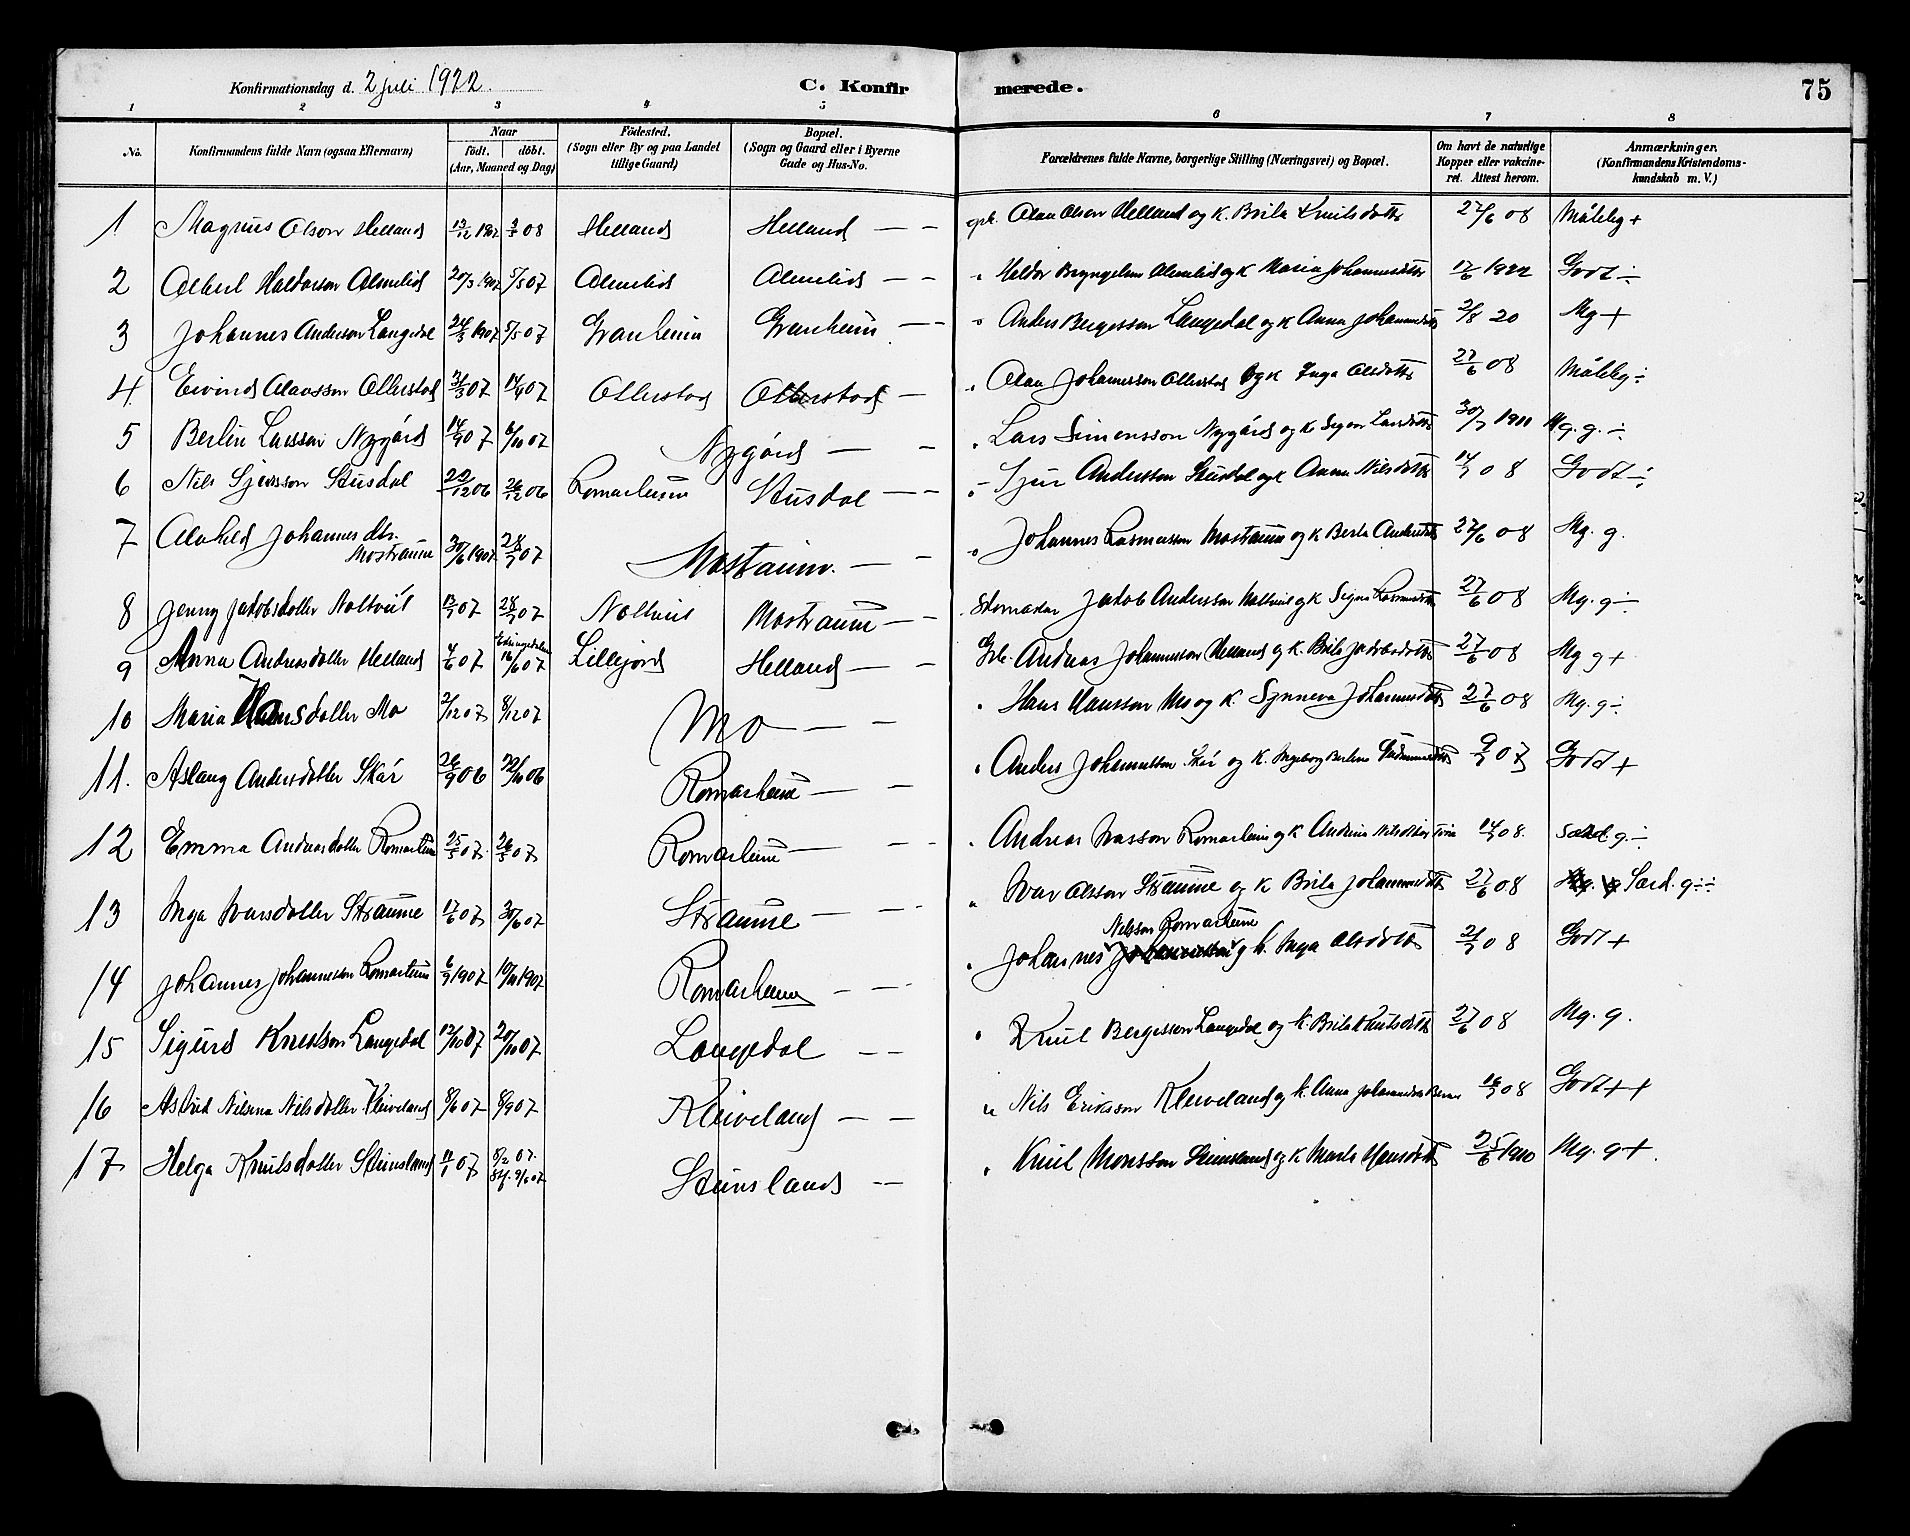 Konfirmationsdag d. 2 juli 1922. C. Konfirmerede. 75
1 2 3 4 5 6 7 8
No. Konfirmandens fulde Navn (ogsaa Efternavn) Naar födt. döbt. (Aar, Maaned og Dag) Födested. (Sogn eller By og paa Landet tillige Gaard) Bopæl. (Sogn og Gaard eller i Byerne Gade og Hus-No. Forældrenes fulde Navne, borgerlige Stilling (Næringsvei) og Bopæl. Om havt de naturlige Kopper eller vakcineret. Attest herom. Anmærkninger. (Konfirmandens Kristendomskundskab m. V.)
1 Magnus Olson Helland 13/12 1907 2/3 08 Helland Helland — — Olai Olson Helland og k. Brita Knutsdotter 27/6 08
2 Haldorson Almelid 20/3 1907 5/5 07 Almelid Almelid — — Haldor Almelid og k Maria Johannesdtr 17/6 1922 Godt ÷
3 Johannes Anderson Langedal 24/3 1907 5/5 07 Anders Bergesson Langedal og k Anna Johannesdtr 2/8 20 Mg +
4 Eivind Olavsson 07 14/4 07 — Olav Johannesson og k Inga Olsdotter 27/6 08
5 Larsson Nygård 14/9 07 6/10 07 Nygård — — Lars Simensson Nygård og k Larsdotter 30/7 1911 Mg. g. ÷
6 Nils Sjursson Stusdal 12 06 26/12 06 Romarheim Stusdal — — Sjur Andersson Stusdal og k Anna Nilsdotter 14/7 08 Godt ÷
7 Johannesdtr. Mostraum 30/6 1907 28/7 07 Mostraum. — — Johannes Rasmusson Mostraum og k Berta Andersdtr 27/6 08 Mg. g.
8 Jenny Jakobsdotter 13/7 07 28/7 07 Mostraum — — Jakob Andersson og k Signe Rasmusdtr 27/6 08 Mg. g ÷
9 Anna Andreasdotter Helland 4/6 07 16/6 07 Lillejord Helland — — Andreas Johannesson Helland og k. Brita Jakobsdotter 27/6 08 Mg g +
10 Maria Hansdotter Mo 2/12 07 8/12 07 Mo — — Hans Hansson Mo og k. Synneva Johannesdtr 27/6 08 Mg. g ÷
11. Aslaug Andersdotter Skår 26/9 06 10 06 Romarheim — — Anders Johannesson Skår og k. Ingeborg Berline 9/7 07 Godt +
12 Emma Andreasdotter Romarheim 25/5 07. 26/5 07 Romarheim — — Andreas Ivarsson Romarheim og k Andrina 08. g. ÷
13 Inga Ivarsdotter Straume 17/6 07 30/6 07 Straume — — Ivar Olsson Straume og k Brita Johannesdtr 27/6 08 Særd. g ÷÷
14 Johannes Johannesson Romarheim 6/9 1907 10/11 1907 Romarheim — — Johannes Nilsson Romarheim og k. Inga Olsdotter 21/7 08 Godt +
15 Sigurd Knutson Langedal 13/10 07 20/10 07 Langedal — — Knut Bergesson Langedal og k. Brita Knutsdotter 27/6 08 Mg. g.
16 Astrid Nilsina Nilsdotter Kleiveland 8/6 07 8/9 07 Kleiveland — — Nils Eriksson Kleiveland og k. Anna 08 Godt ++
17 Helga Knutsdotter Steinsland 11/1 07 8/2 07. 9/6 07 Steinsland — — Knut Monsson Steinsland og k Marta Hansdtr 25/6 1910 Mg. g +.